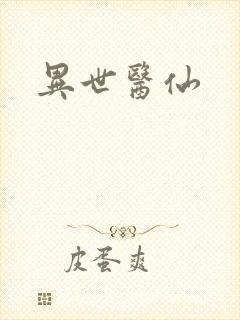 異世醫仙
皮蛋爽